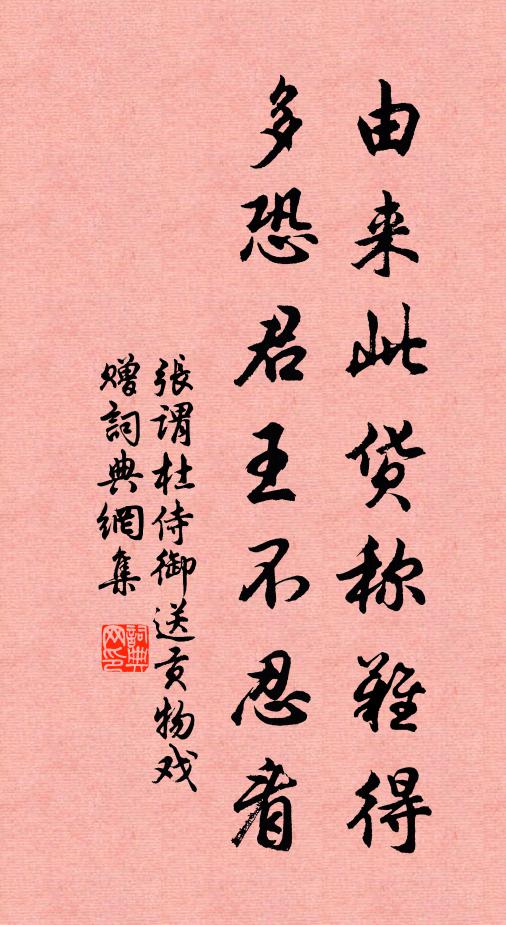 由来此货称难得
多恐君王不忍看
張谓杜侍御送贡物戏
赠詞典網集
詞典
网印